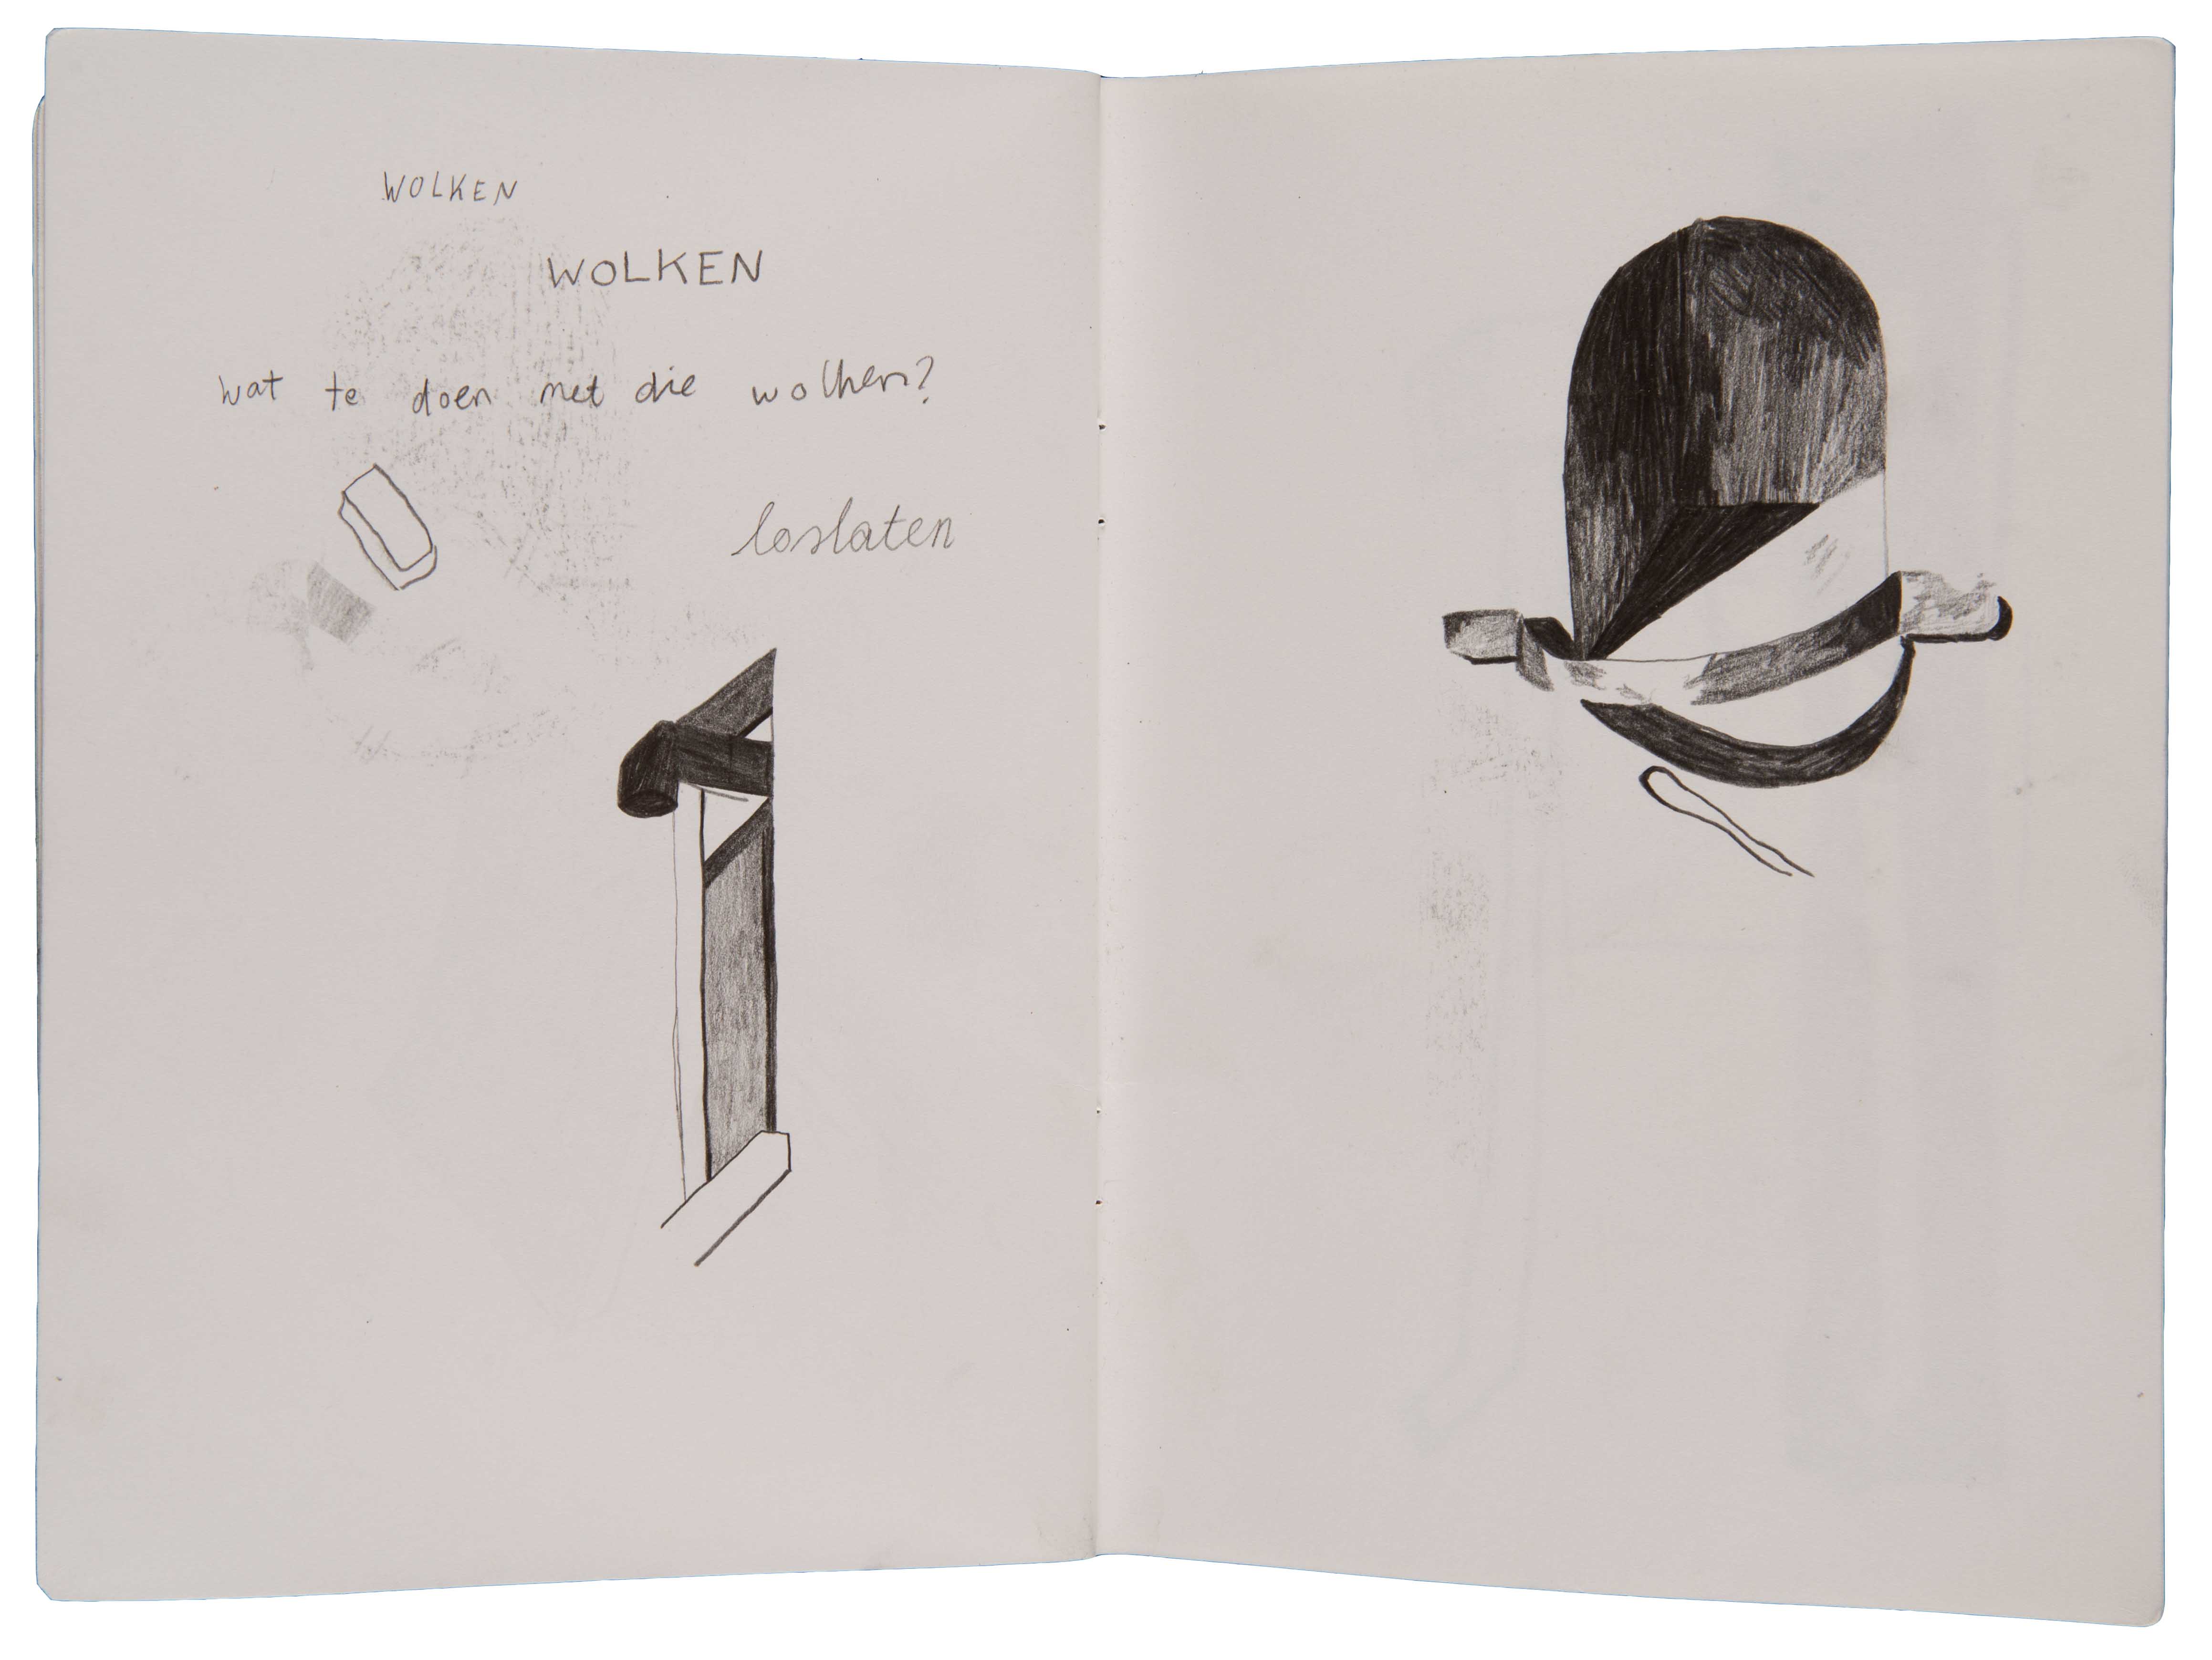 WOLKEN
WOLKEN
wat te doen met die wolken?
loslaten